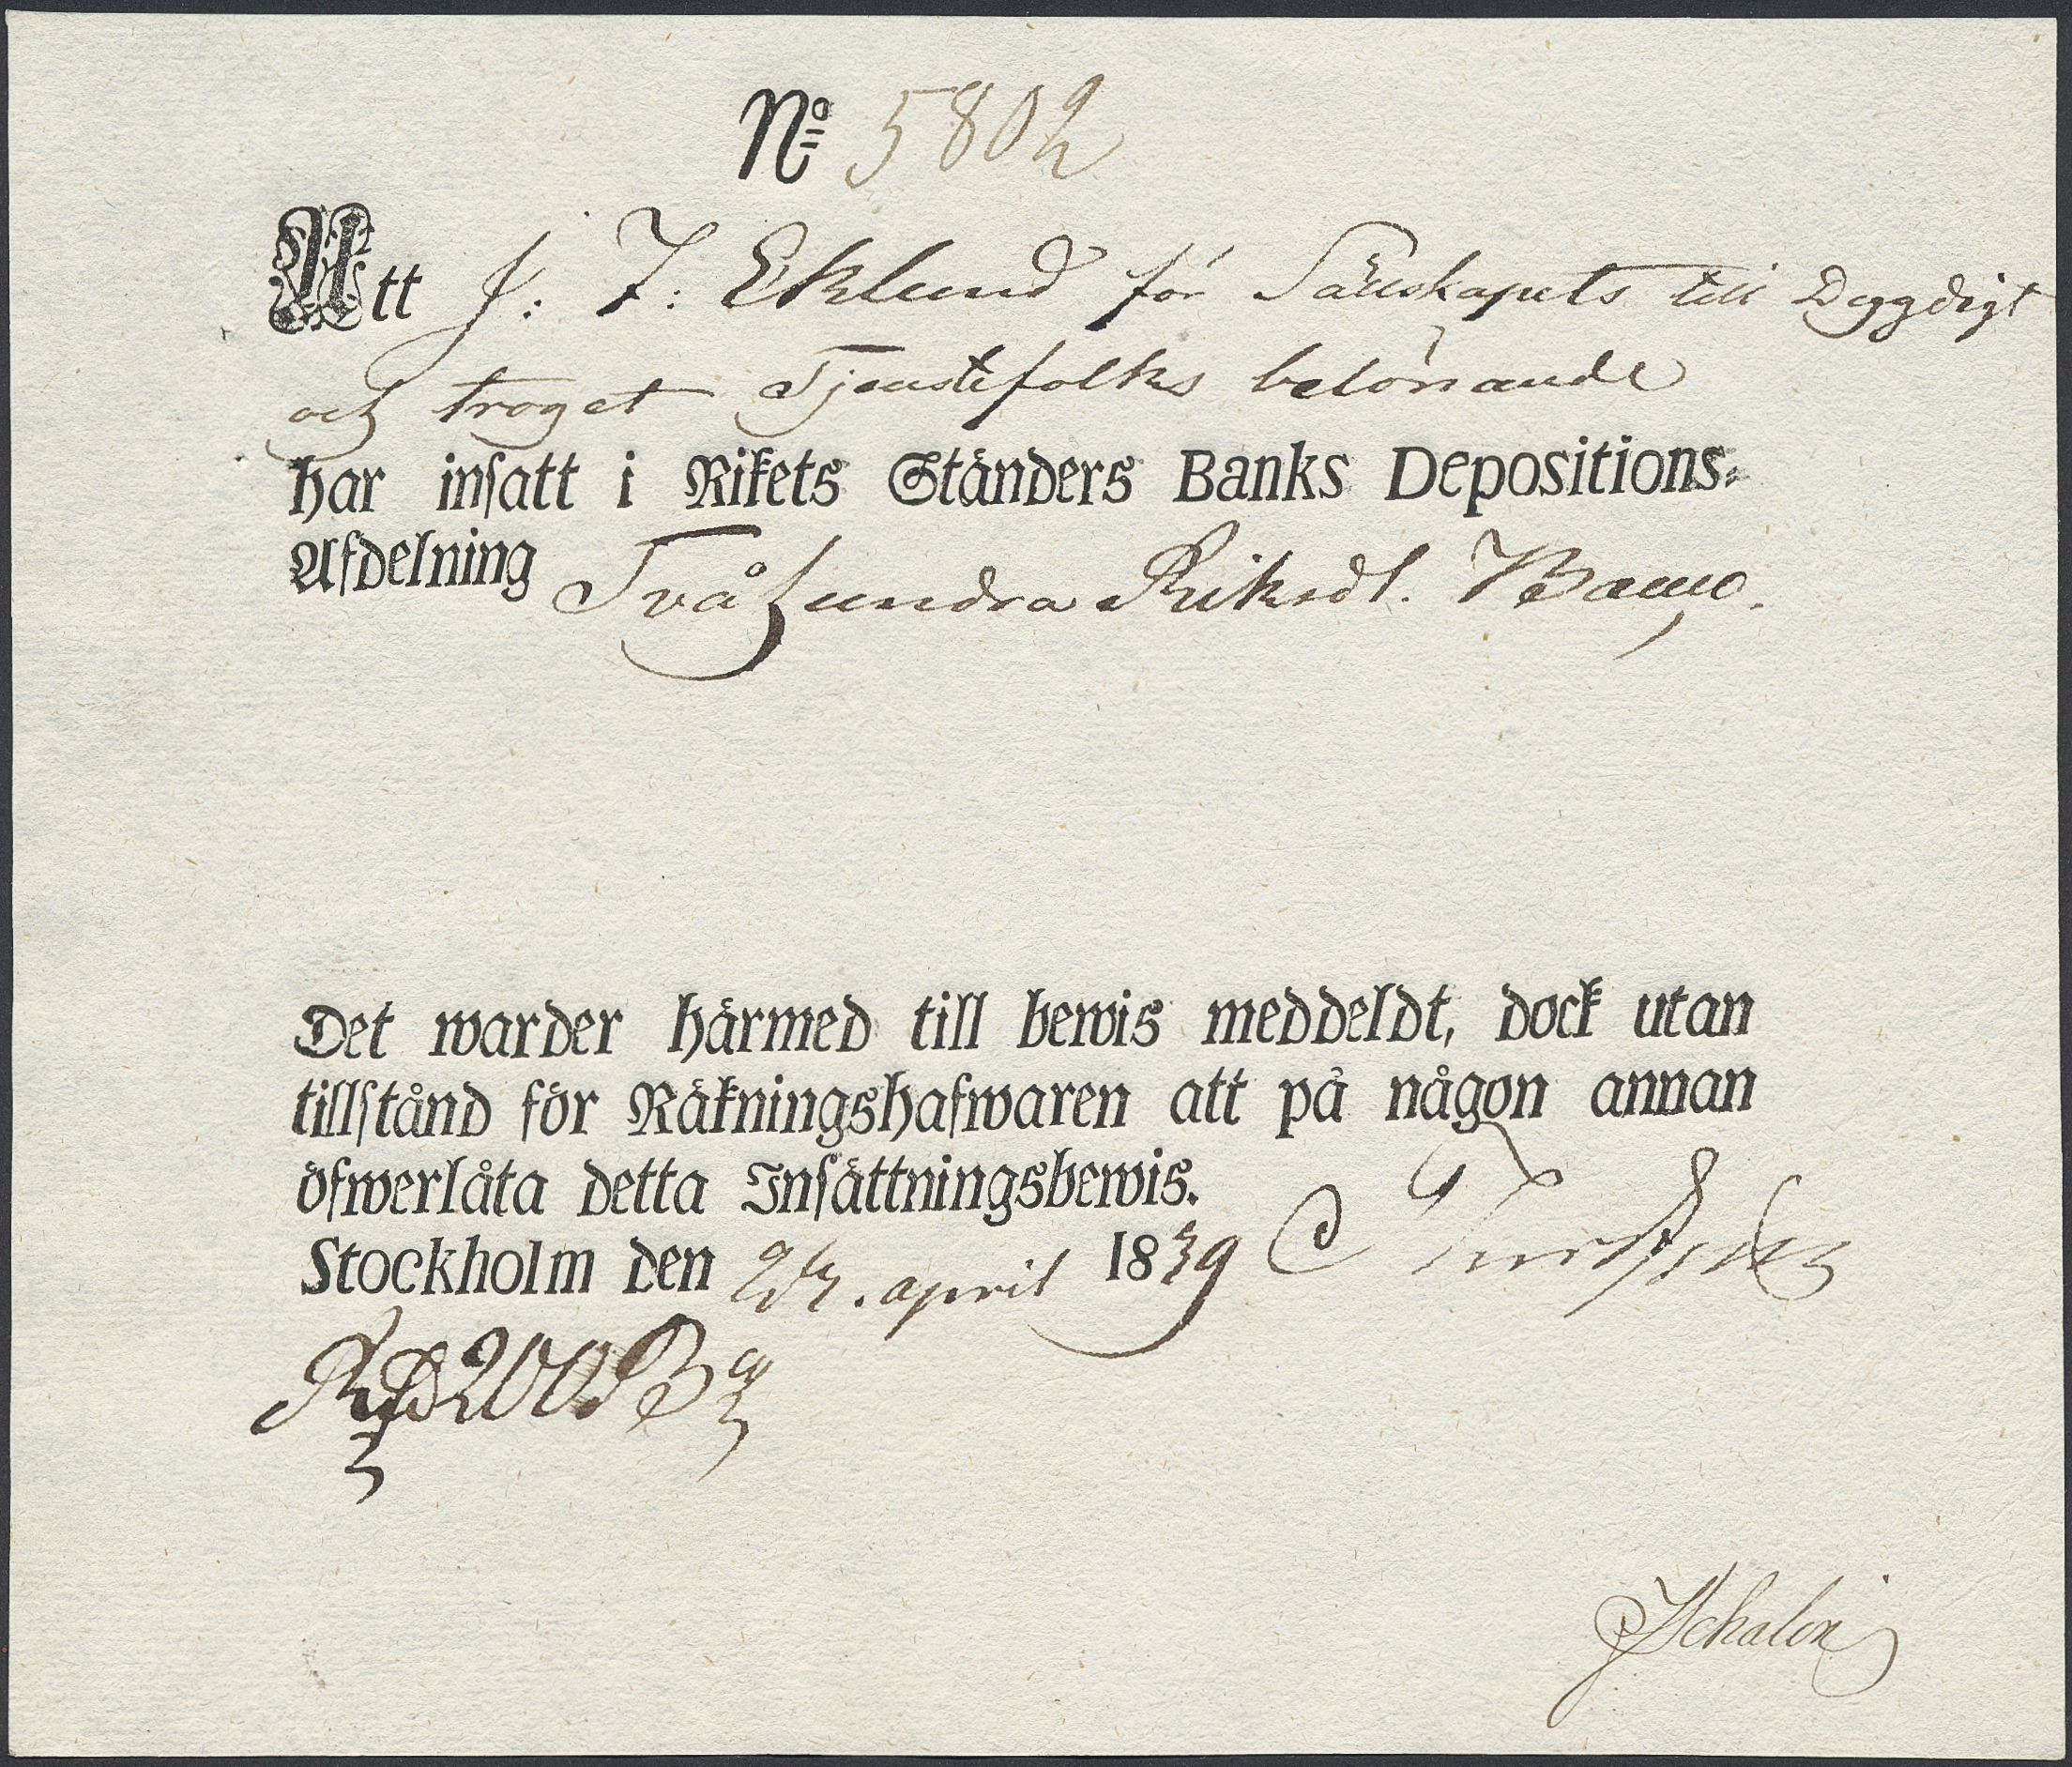 No 5802
Att J: F: Eklund för Sällskapets till Dygdigt
och troget Tjenstefolks belönande
har insatt i Rikets Ständers Banks Depositions-
Afdelning Tvåhundra Riksdl. Banco.
Det warder härmed till bewis meddeldt, dock utan
tillstånd för Räkningshafwaren att på någon annan
öfwerlåta detta Insättningsbewis.
Stockholm den april 1839
Rd 200 B
Schalén